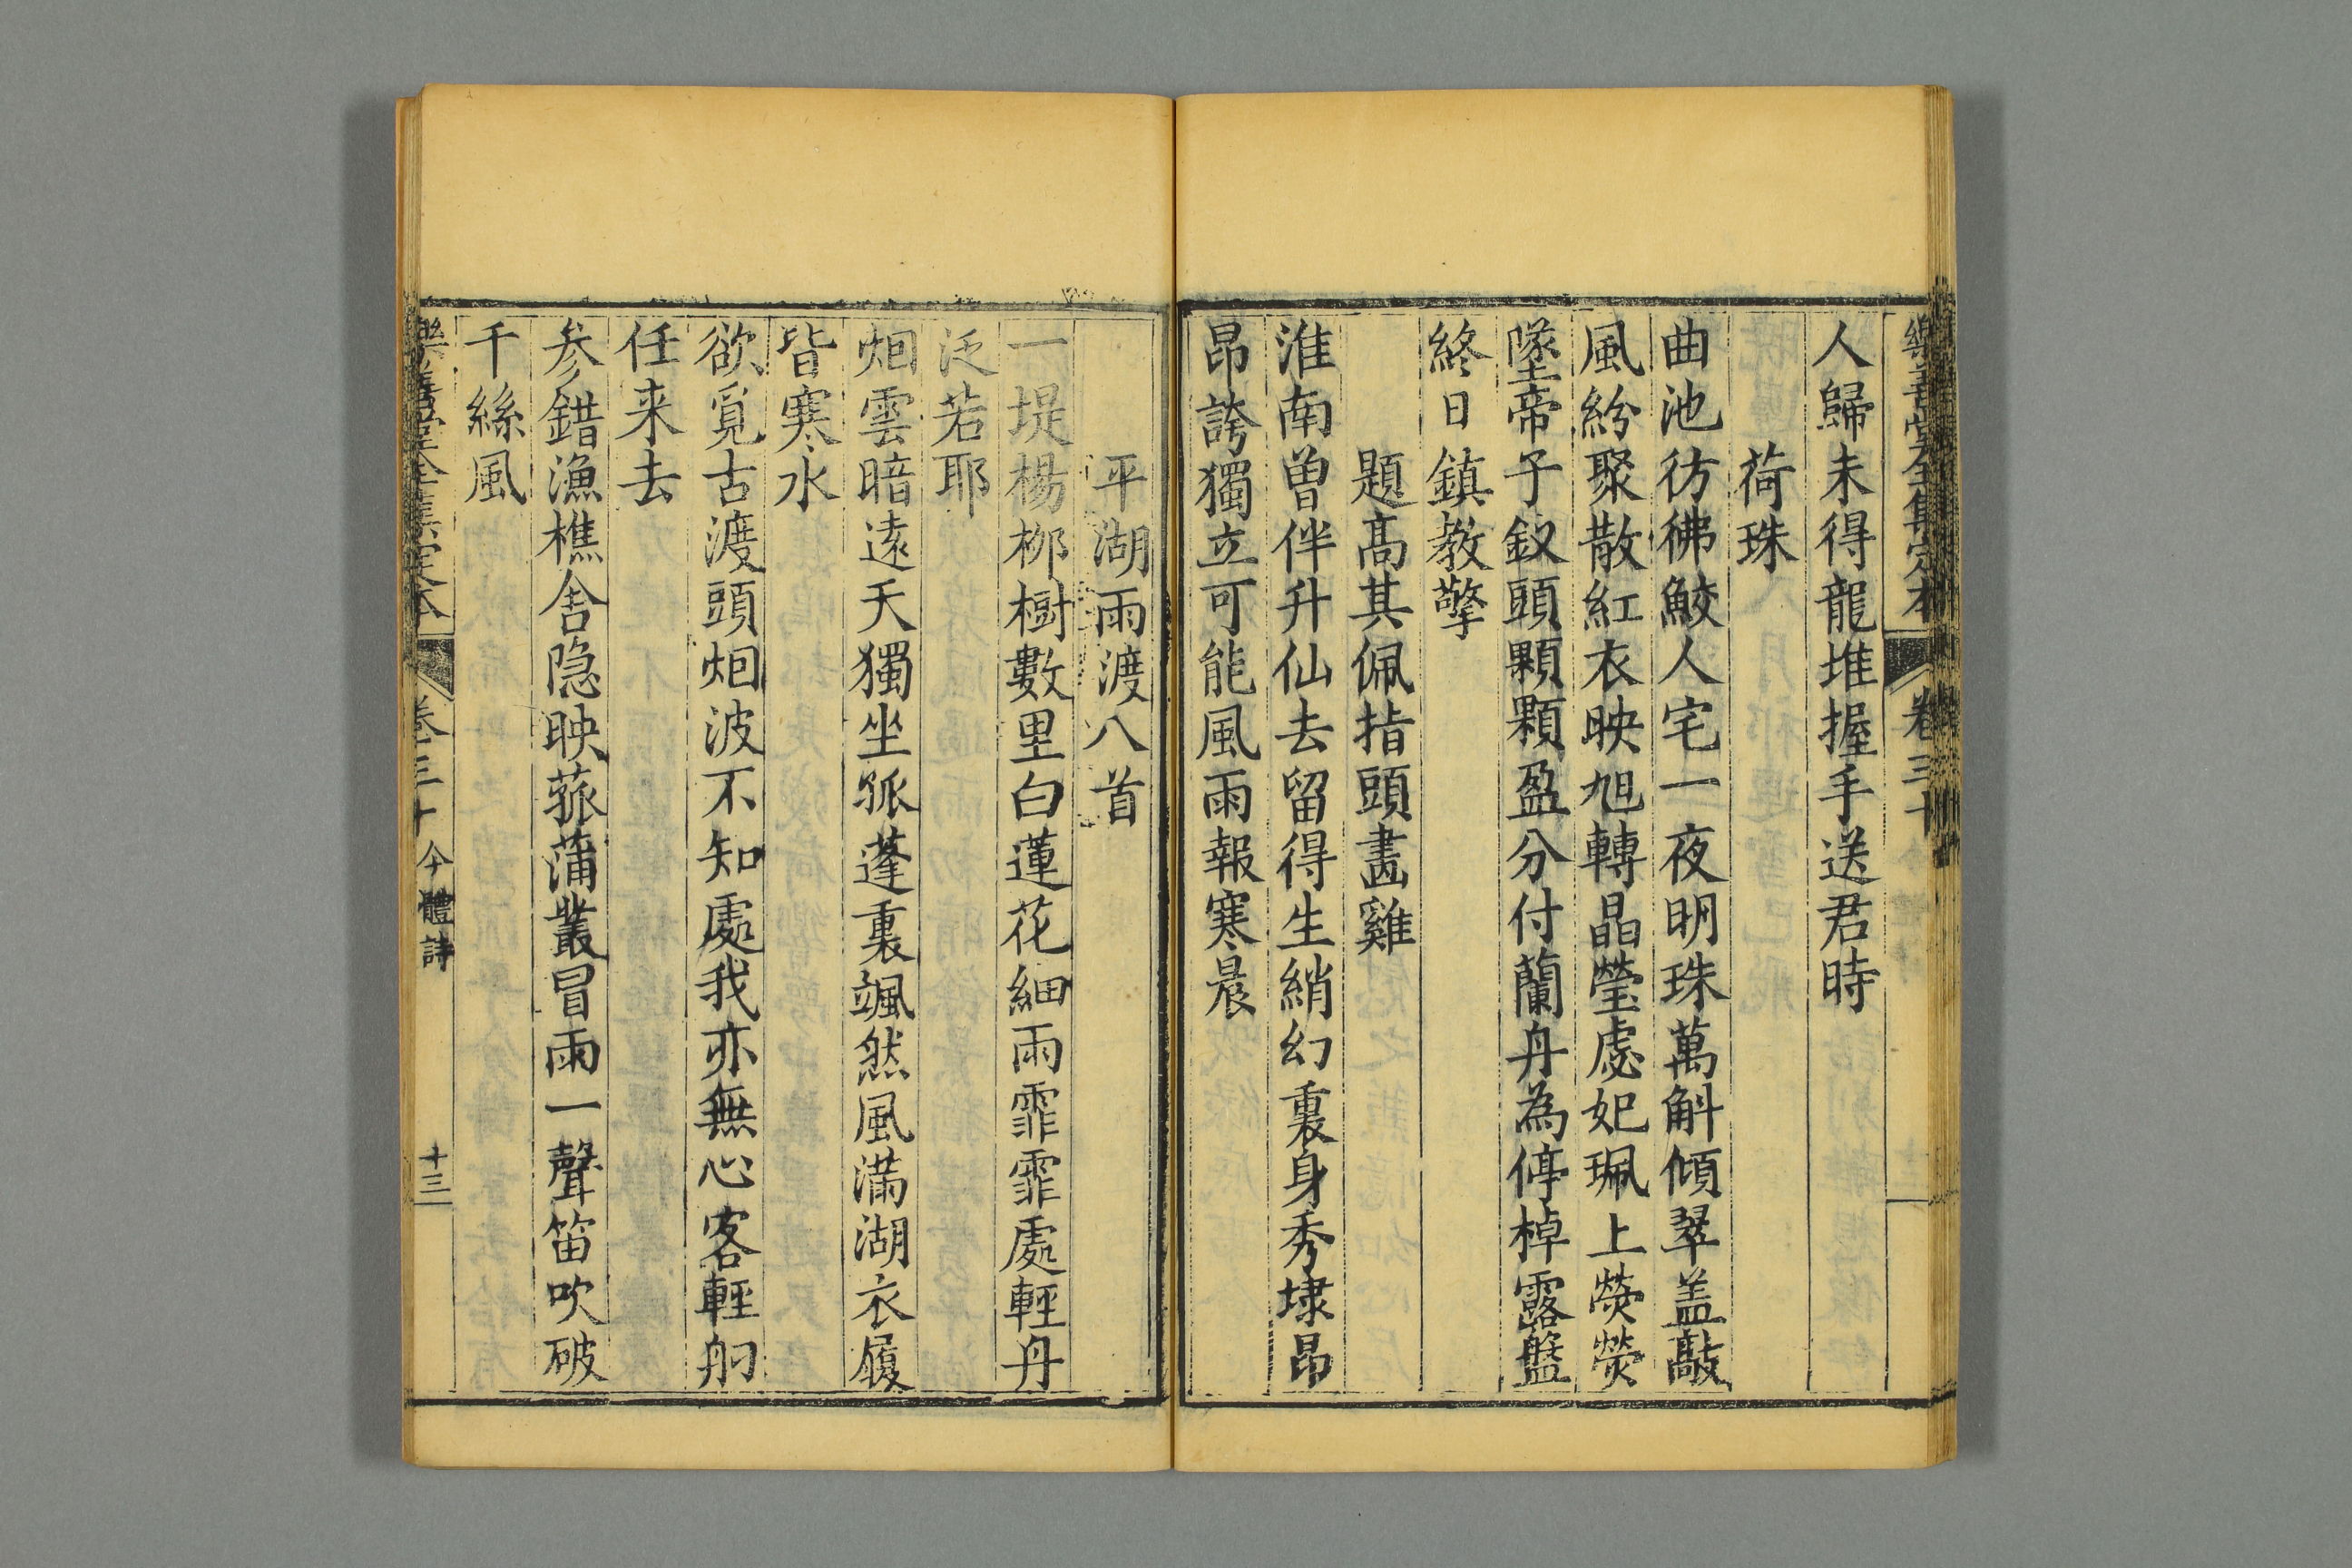 樂善堂全集定本 卷三十
人歸未得龍堆握手送君時
荷珠
曲池彷彿鮫人宅一夜明珠萬斛傾翠盖敲
風紛聚散紅衣映旭轉晶瑩虙妃珮上熒熒
墜帝子釵頭顆顆盈分付蘭舟為停棹露盤
終日鎮教擎
題髙其佩指頭畵雞
淮南曽伴升仙去留得生綃幻裏身秀㻖昂
昂誇獨立可能風雨報寒晨
平湖雨渡八首
一堤楊栁樹數里白蓮花細雨霏霏處輕舟
泛若耶
烟雲暗逺天獨坐孤蓬裏颯然風滿湖衣履
皆寒水
欲覓古渡頭烟波不知處我亦無心客輕舠
任来去
参錯漁樵舍隐映菰蒲叢冒雨一聲笛吹破
千絲風
樂善堂全集定本 卷三十 今體詩 十三